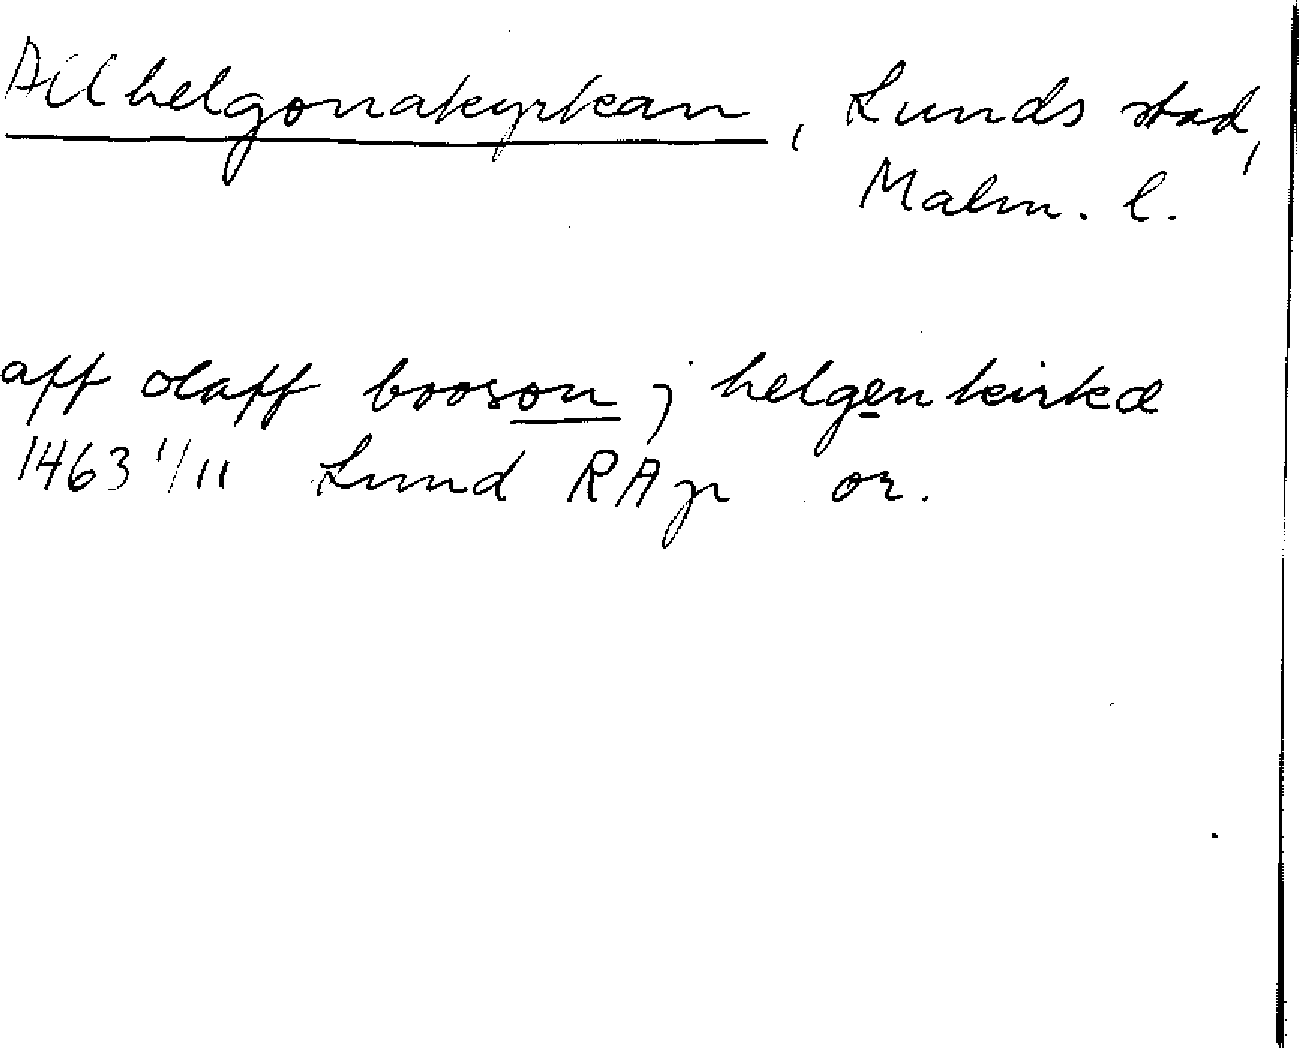 Allhelgonakyrkan, Lunds stad,
Malm. l.
aff olaff booson j helgenkirkæ
1463 1/11 Lund RAp or.